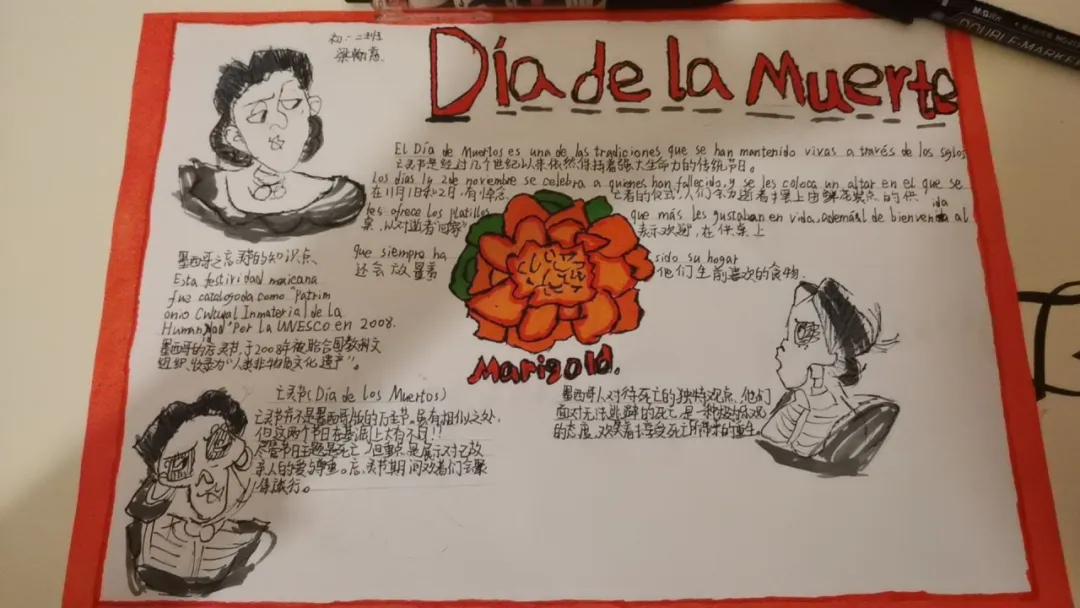 初一二班
Día de la Muerte
El Día de Muertos es una de las tradiciones que se han mantenido vivas a través de los siglos
亡灵节是经过几个世纪以来依然保持着强大生命力的传统节日。
Los días 1 y 2 de novembre se celebra a quienes han fallecido, y se les coloca un altar en el que se
在11月1日和2日,有悼念 亡者的仪式,人们会为逝者摆上由鲜花装点的供
les ofrece los platillos que más les gustaban en vida, además de bienvenida al
桌,以对逝者"回家" 表示欢迎,在供桌上
que siempre ha sido su hogar
还会放置着 他们生前喜欢的食物.
墨西哥亡灵节的知识点、
Esta festividad mexicana
fue catalogada como "Patrim
onio Cultural Inmaterial de la
Humanidad" Por la UNESCO en 2008.
墨西哥的亡灵节,于2008年被联合国教科文
组织收录为"人类非物质文化遗产"。
Marigold.
亡灵节(Día de los Muertos)
亡灵节并不是墨西哥版的万圣节。虽有相似之处,
但这两个节日在基调上大有不同!!
尽管节日主题是死亡,但重点是展示对已故
亲人的爱与尊重。亡灵节期间狂欢者们会聚
集游行。
墨西哥人对待死亡的独特观点、他们
面对无法逃避的死亡是一种极为乐观
的态度,欢笑着享受死亡所带来的重生
M&G
DOUBLE-MARKER